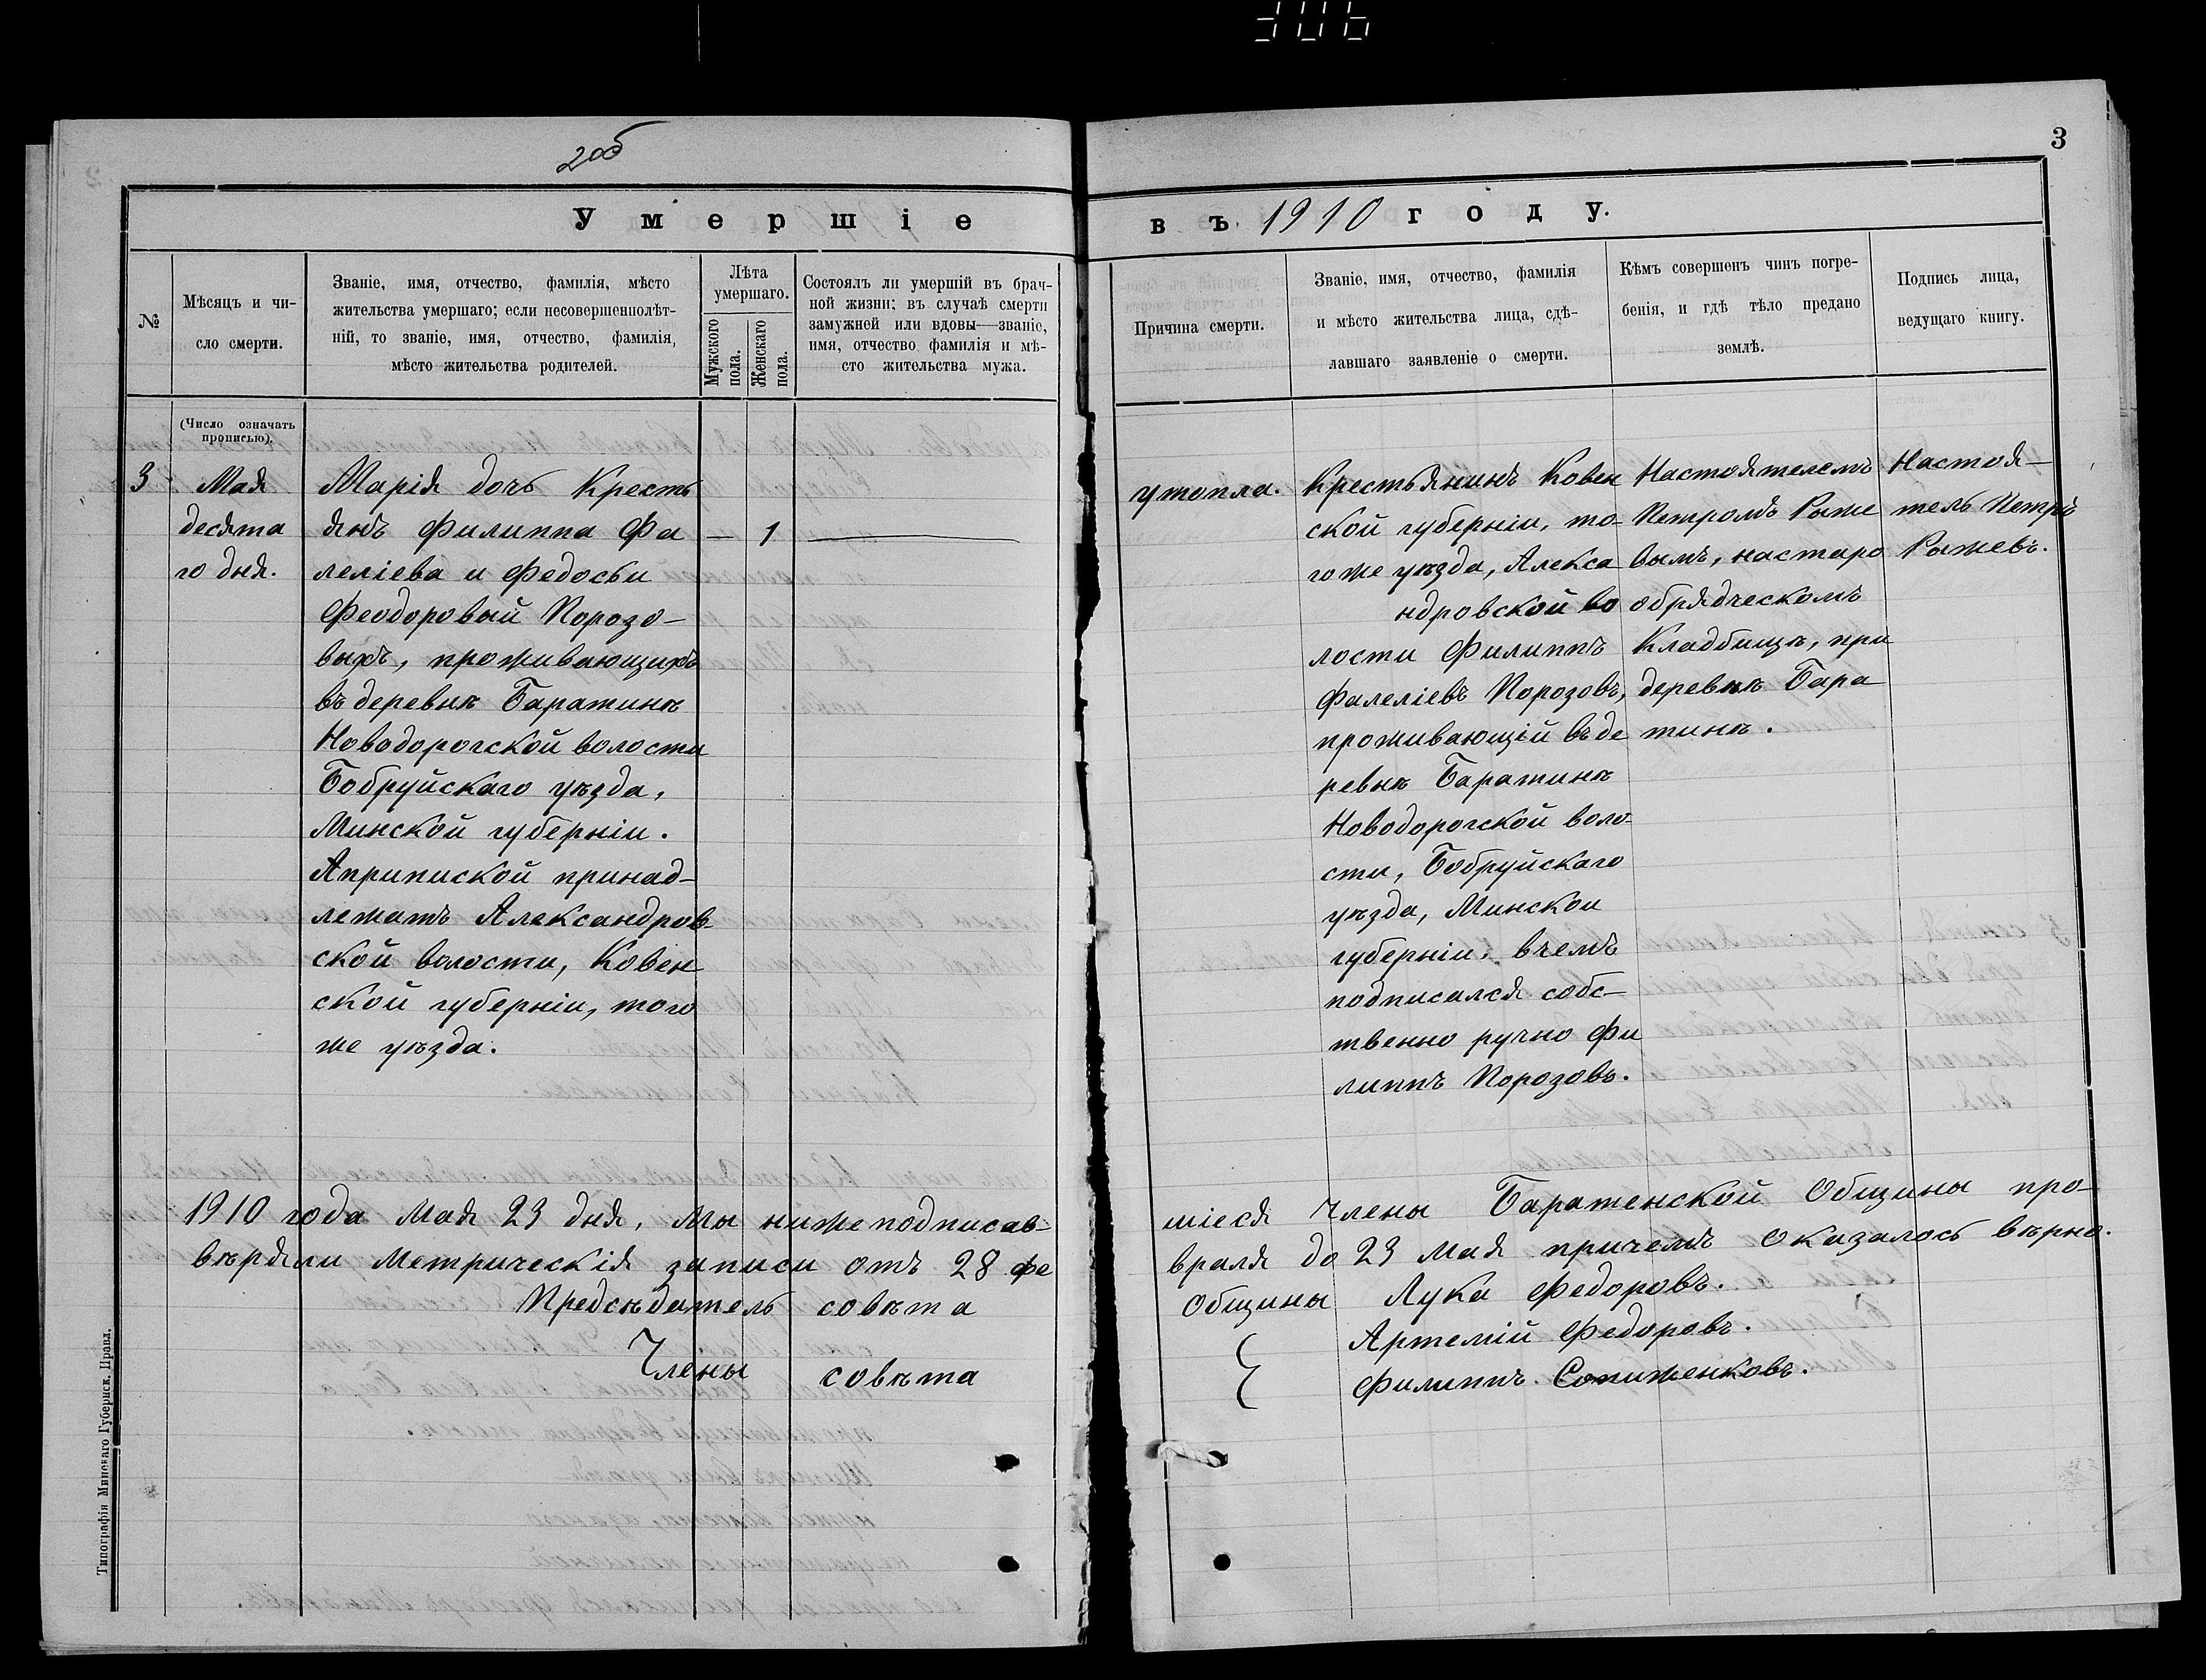 306
2об
3
Умершіе
въ 1910 году.
№
Мѣсяцъ и чи-
сло смерти.
Званіе, имя, отчество, фамилія, мѣсто
жительства умершаго; если несовершеннолѣт-
ній, то званіе, имя, отчество, фамилія,
мѣсто жительства родителей.
Лѣта
умершаго.
Мужского
пола.
Женскаго
пола.
Состоялъ ли умершій въ брач-
ной жизни; въ случаѣ смерти
замужней или вдовы—званіе,
имя, отчество фамилія и мѣ-
сто жительства мужа.
Причина смерти.
Званіе, имя, отчество, фамилія
и мѣсто жительства лица, сдѣ-
лавшаго заявленіе о смерти.
Кѣмъ совершенъ чинъ погре-
бенія, и гдѣ тѣло предано
землѣ.
Подпись лица,
ведущаго книгу.
(Число означать
прописью).
3
Мая
десята
го дня.
Марія дочь Кресть
янъ Филиппа Фа
леліева и Федосьи
Феодоровый Порозо-
выхъ, проживающихъ
въ деревнѣ Баратинѣ
Новодорогской волости
Бобруйскаго уѣзда,
Минской губерніи.
Априпиской принад-
лежатъ Александров-
ской волости, Ковен
ской губерніи, того
же уѣзда.
— 1 —
утопла.
Крестьянинъ Ковен
ской губерніи, то-
го же уѣзда, Алекса
ндровской во
лости Филиппъ
Фалеліевъ Порозовъ,
проживающій въ де
ревнѣ Баратинѣ
Новодорогской воло-
сти, Бобруйскаго
уѣзда, Минскои
губерніи, вчемъ
подписался собс-
твенно ручно Фи
липпъ Порозовъ.
Настоятелемъ
Петромъ Рыже
вымъ, настаро
обрядческомъ
Кладбищѣ, при
деревнѣ Бара
тинѣ.
Настоя-
тель Петръ
Рыжевъ.
1910 года Мая 23 дня, Мы нижеподписав-
шіеся Члены Баратенской Общины про-
вѣряли Метрическія записи отъ 28 фе
враля до 23 Мая причемъ Оказалось вѣрно.
Предсѣдатель совѣта
Общины Лука Федоровъ.
Члены совѣта
Артемій Федоровъ.
Филиппъ Сопиженковъ.
Типографія Минскаго Губернск. Правл.